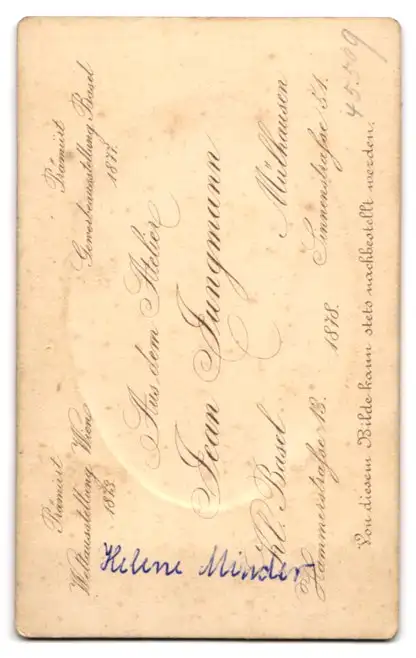 Prämiirt
Weltausstellung Wien
1873.
Prämiirt
Gewerbeausstellung Basel
1877.
Aus dem Atelier
Jean Jungmann
Kl. Basel
Hammerstraße 13.
Mülhausen
Sinnenstraße 51.
1878.
Von diesem Bilde kann stets nachbestellt werden.
Helene Minder
45509